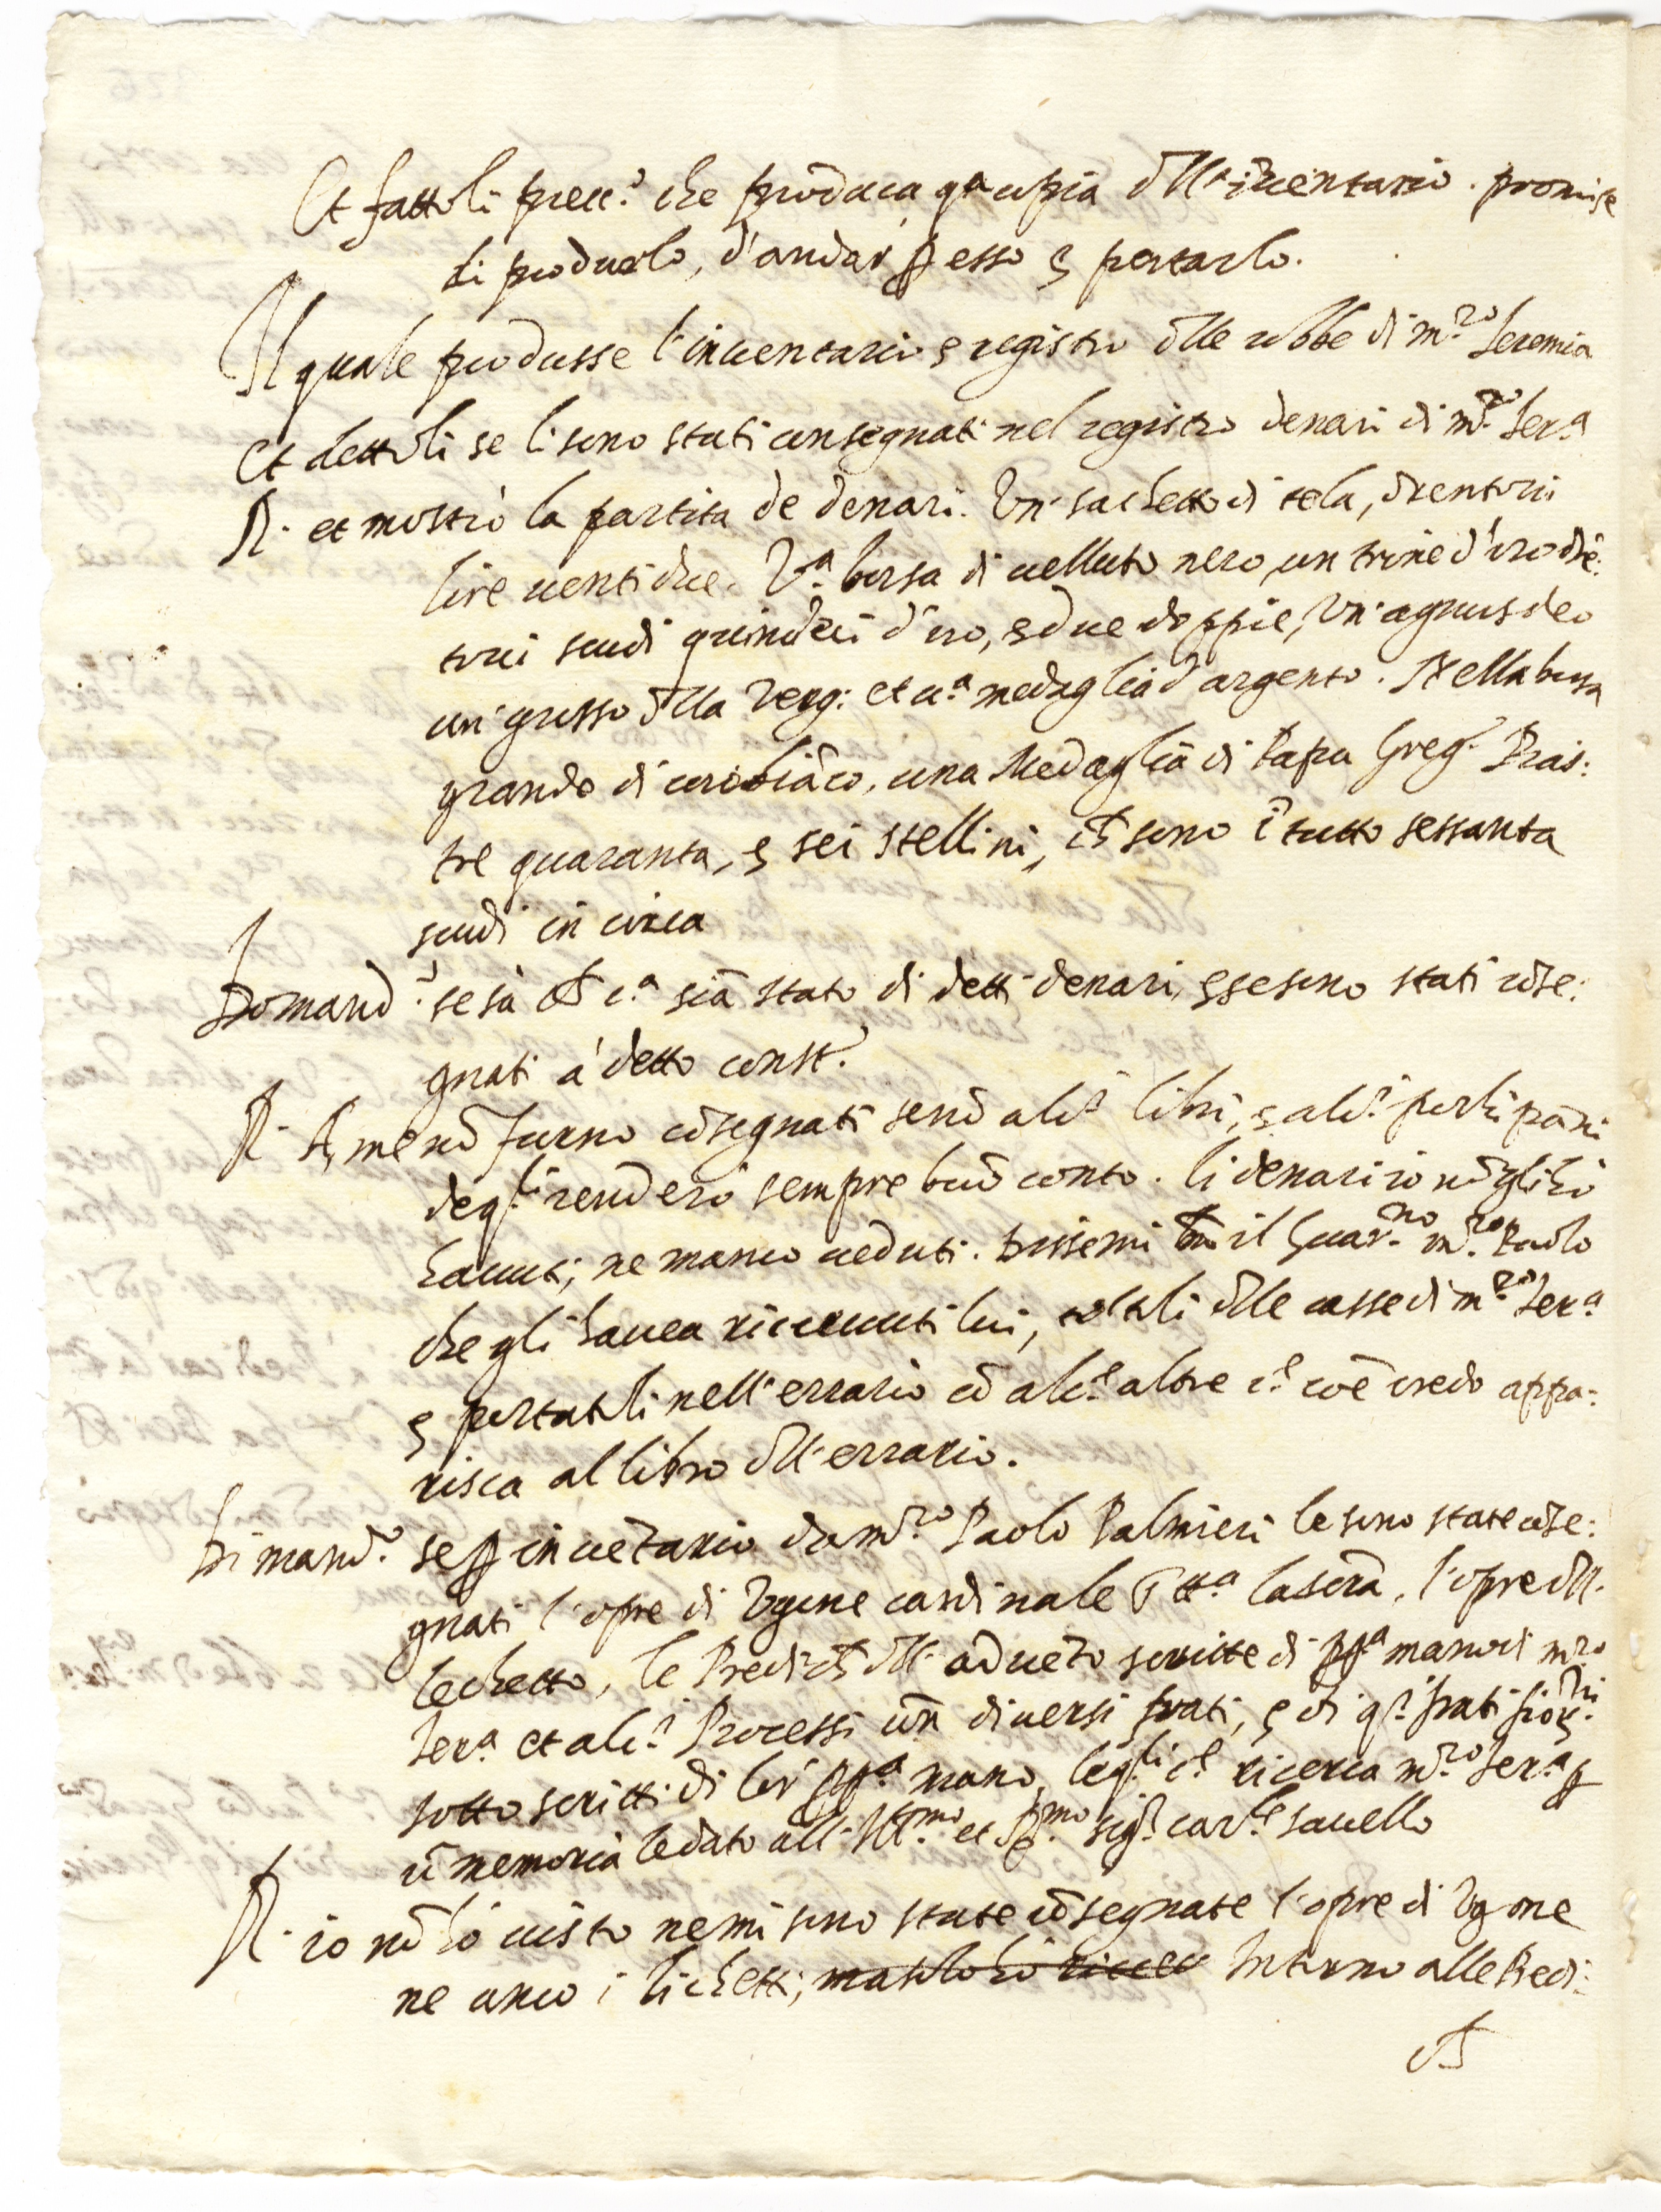 Et fattoli prec.º che prōduca q.ª copia dll'inuentario. promise
di produrlo, d'andar p esso e portarlo.
Il quale produsse l'inuentario e registro dlle robbe di m.ro Jeremia
Et dettoli se li sono stati consegnati nel registro denari di m.ro Jer.ª
R. et mostrò la partita de denari. Vn' sachetto di tela, drentoui
lire uentidue. V.ª borsa di uelluto nero, un trine d'oro drē:
toui scudi quindeci d'oro, e due doppie, Vn' agnusdeo
un' grosso dlla Verg: et u.ª medaglia d'argento. Nella borsa
grande di corobiāco, una Medaglia di Papa Greg.º Pias:
tre quaranta, e sei stellini, ch sono ī tutto sessanta
scudi in circa
Domand.º se sà ch c.ª sia stato di detti denari, e se sono stati cōse:
gnati à detto const.º
R. A me nō furno cōsegnati senō alc.i libri, e alc.i pochi pāni
de q.li renderò sempre buō conto. li denari io nō gli hò
hauuti, ne manco ueduti. Dissemi bn il Guar.no m.ro Paolo
che gli hauea riceuuti lui, toltoli dlle casse di m.ro Jer.ª
e portatoli nell'errario cō alc.e altre c.e coē credo appa:
risca al libro dll'errario.
Dimand.º se p inuētario da m.ro Paolo Palmieri le sono state cōse:
gnati l'opre di Vgone cardinale s.ª tt.ª la scrā, l'opre dll.
lechetto, le Predich dll'aduēto scritte di pp.ª mano di m.ro
Jer.ª et alc.i Processi cōn diuersi frati, e di q.i frati fior.ni
sotto scritti di lor' pp.ª mano, le q.li c.e ricerca m.ro Jer.ª p
ū memoria le dato all'Ill.mo et R.mo sig.r car.le sauello
R. io nō hò uisto ne mi sono state cōsegnate l'opre di Vgone
ne anco i lichetti, ma solo hò riceu Intorno alle Predi:
ch